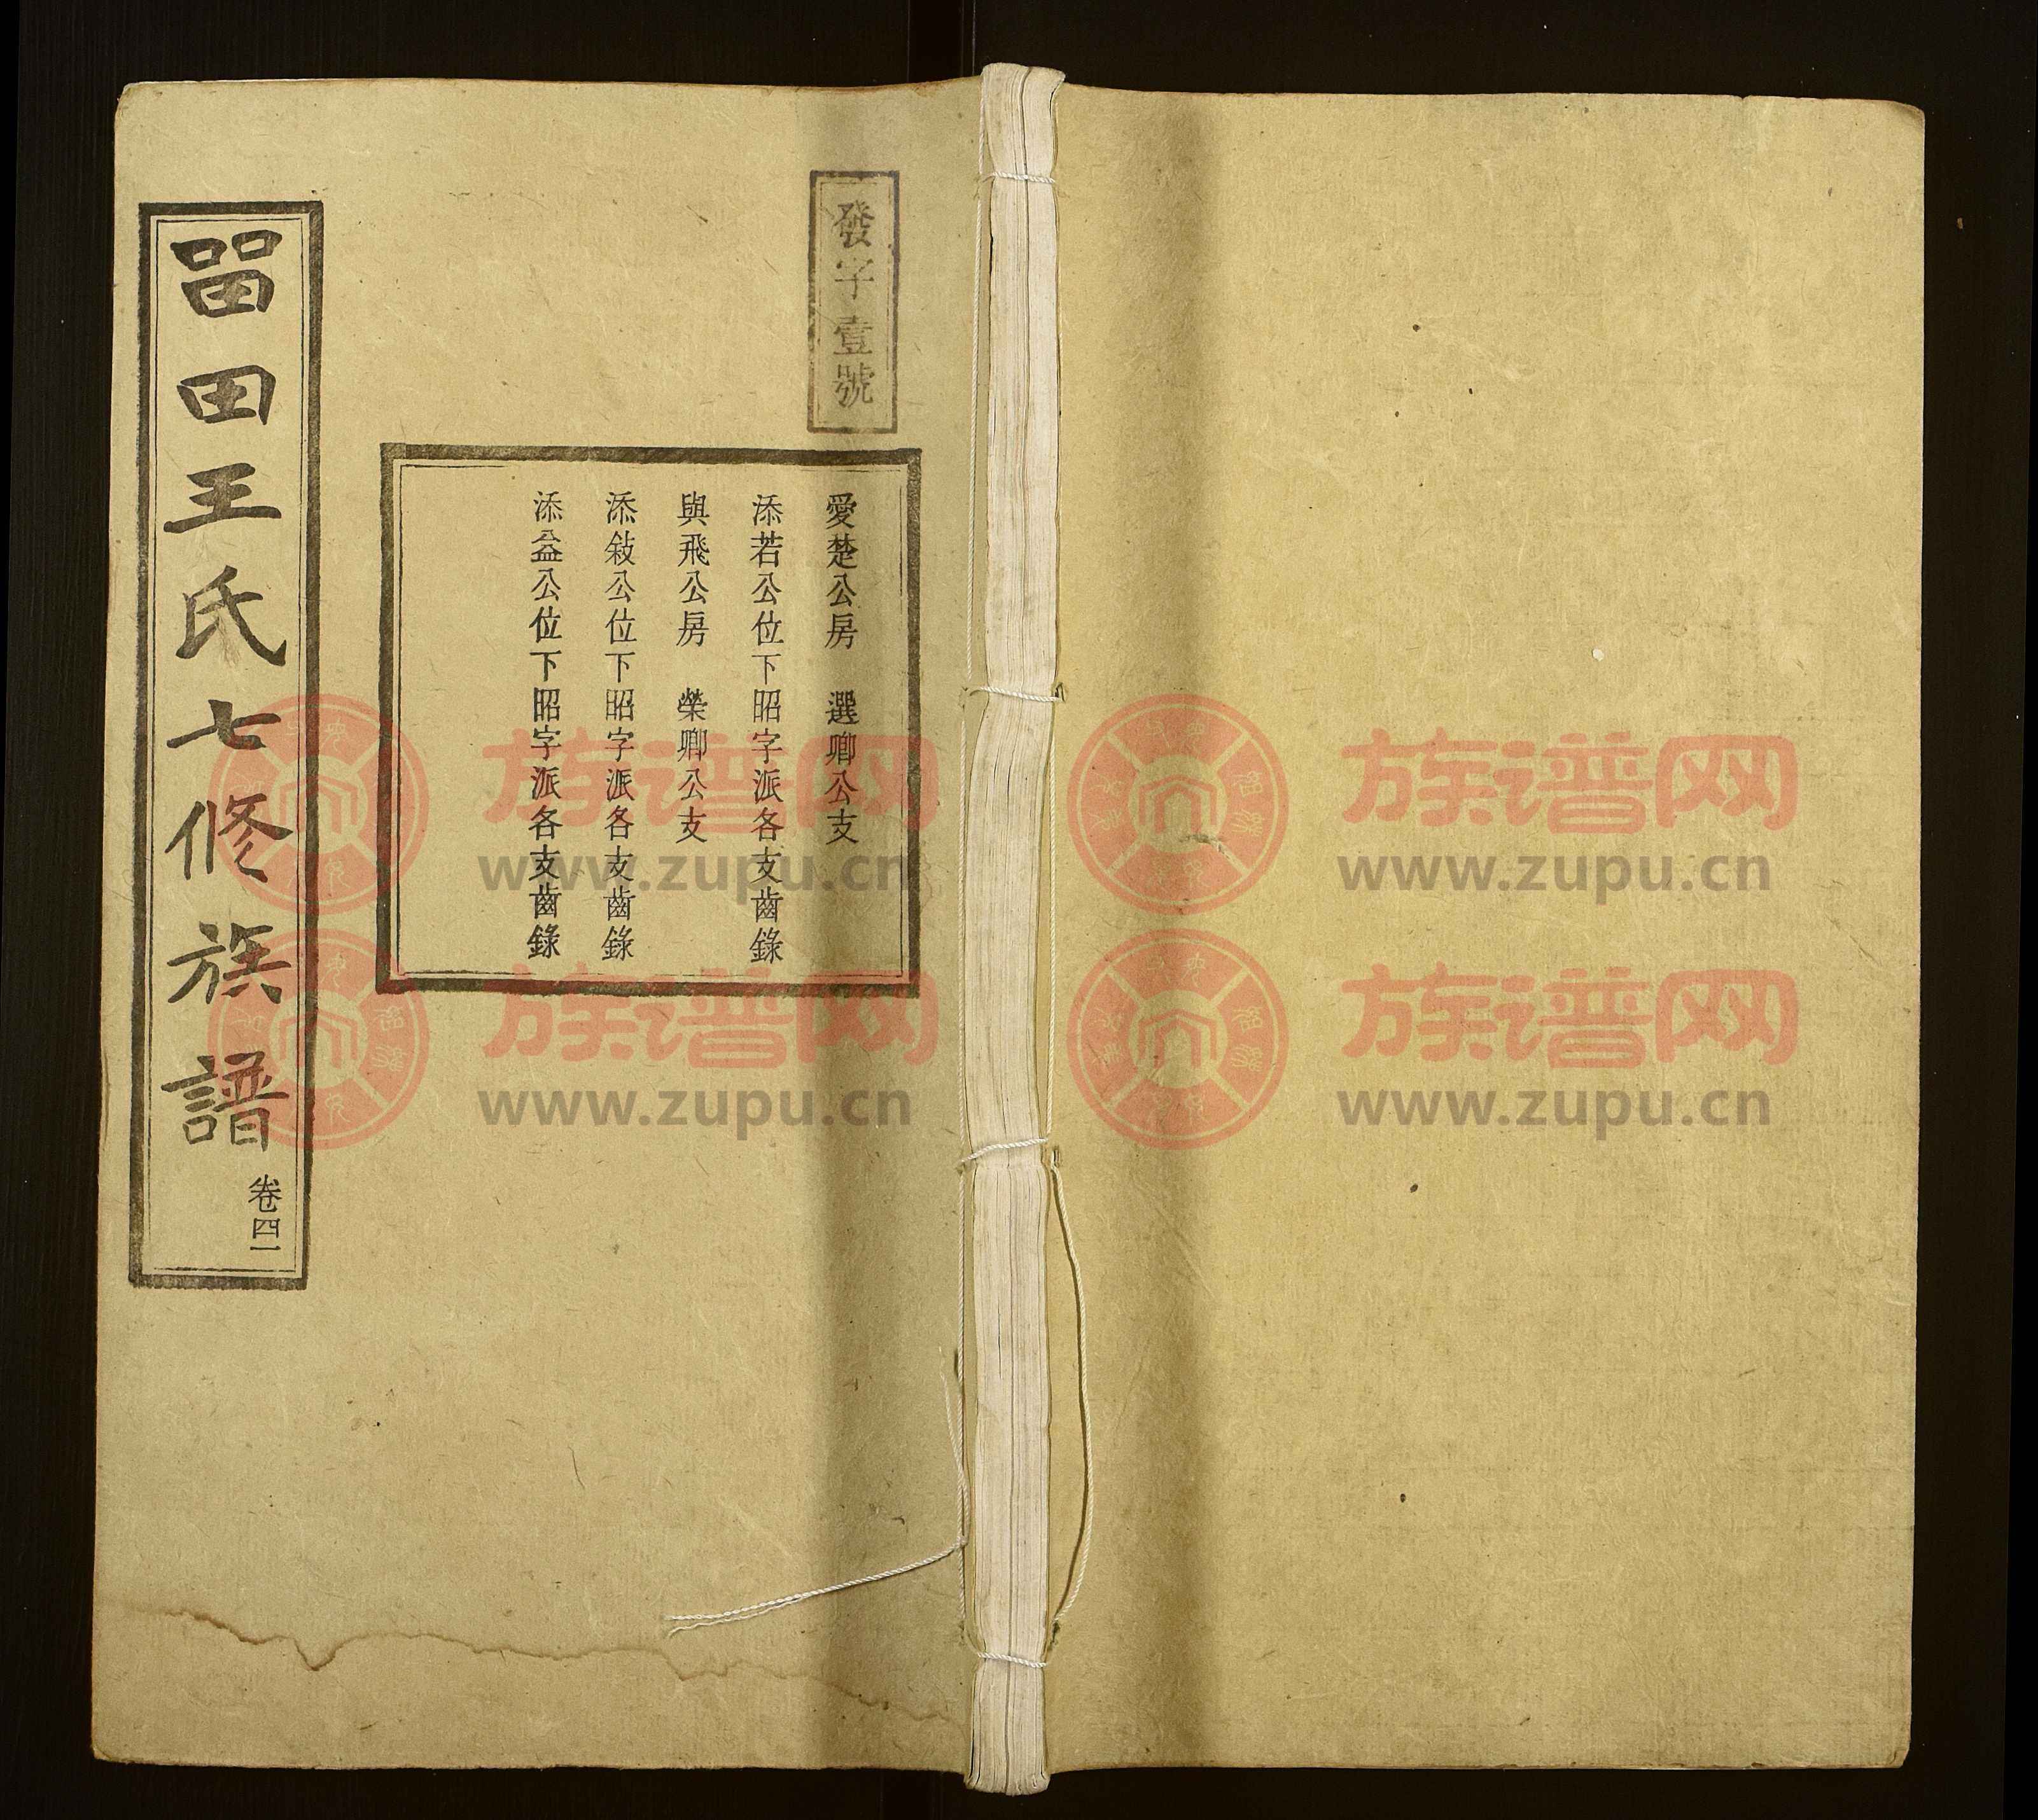 發字壹號
愛楚公房　選卿公支
添若公位下昭字派各支齒錄
與飛公房　榮卿公支
添敍公位下昭字派各支齒錄
添益公位下昭字派各支齒錄
畱田王氏七修族譜
卷四一
族谱网
www.zupu.cn
族谱网
www.zupu.cn
族谱网
www.zupu.cn
族谱网
www.zupu.cn